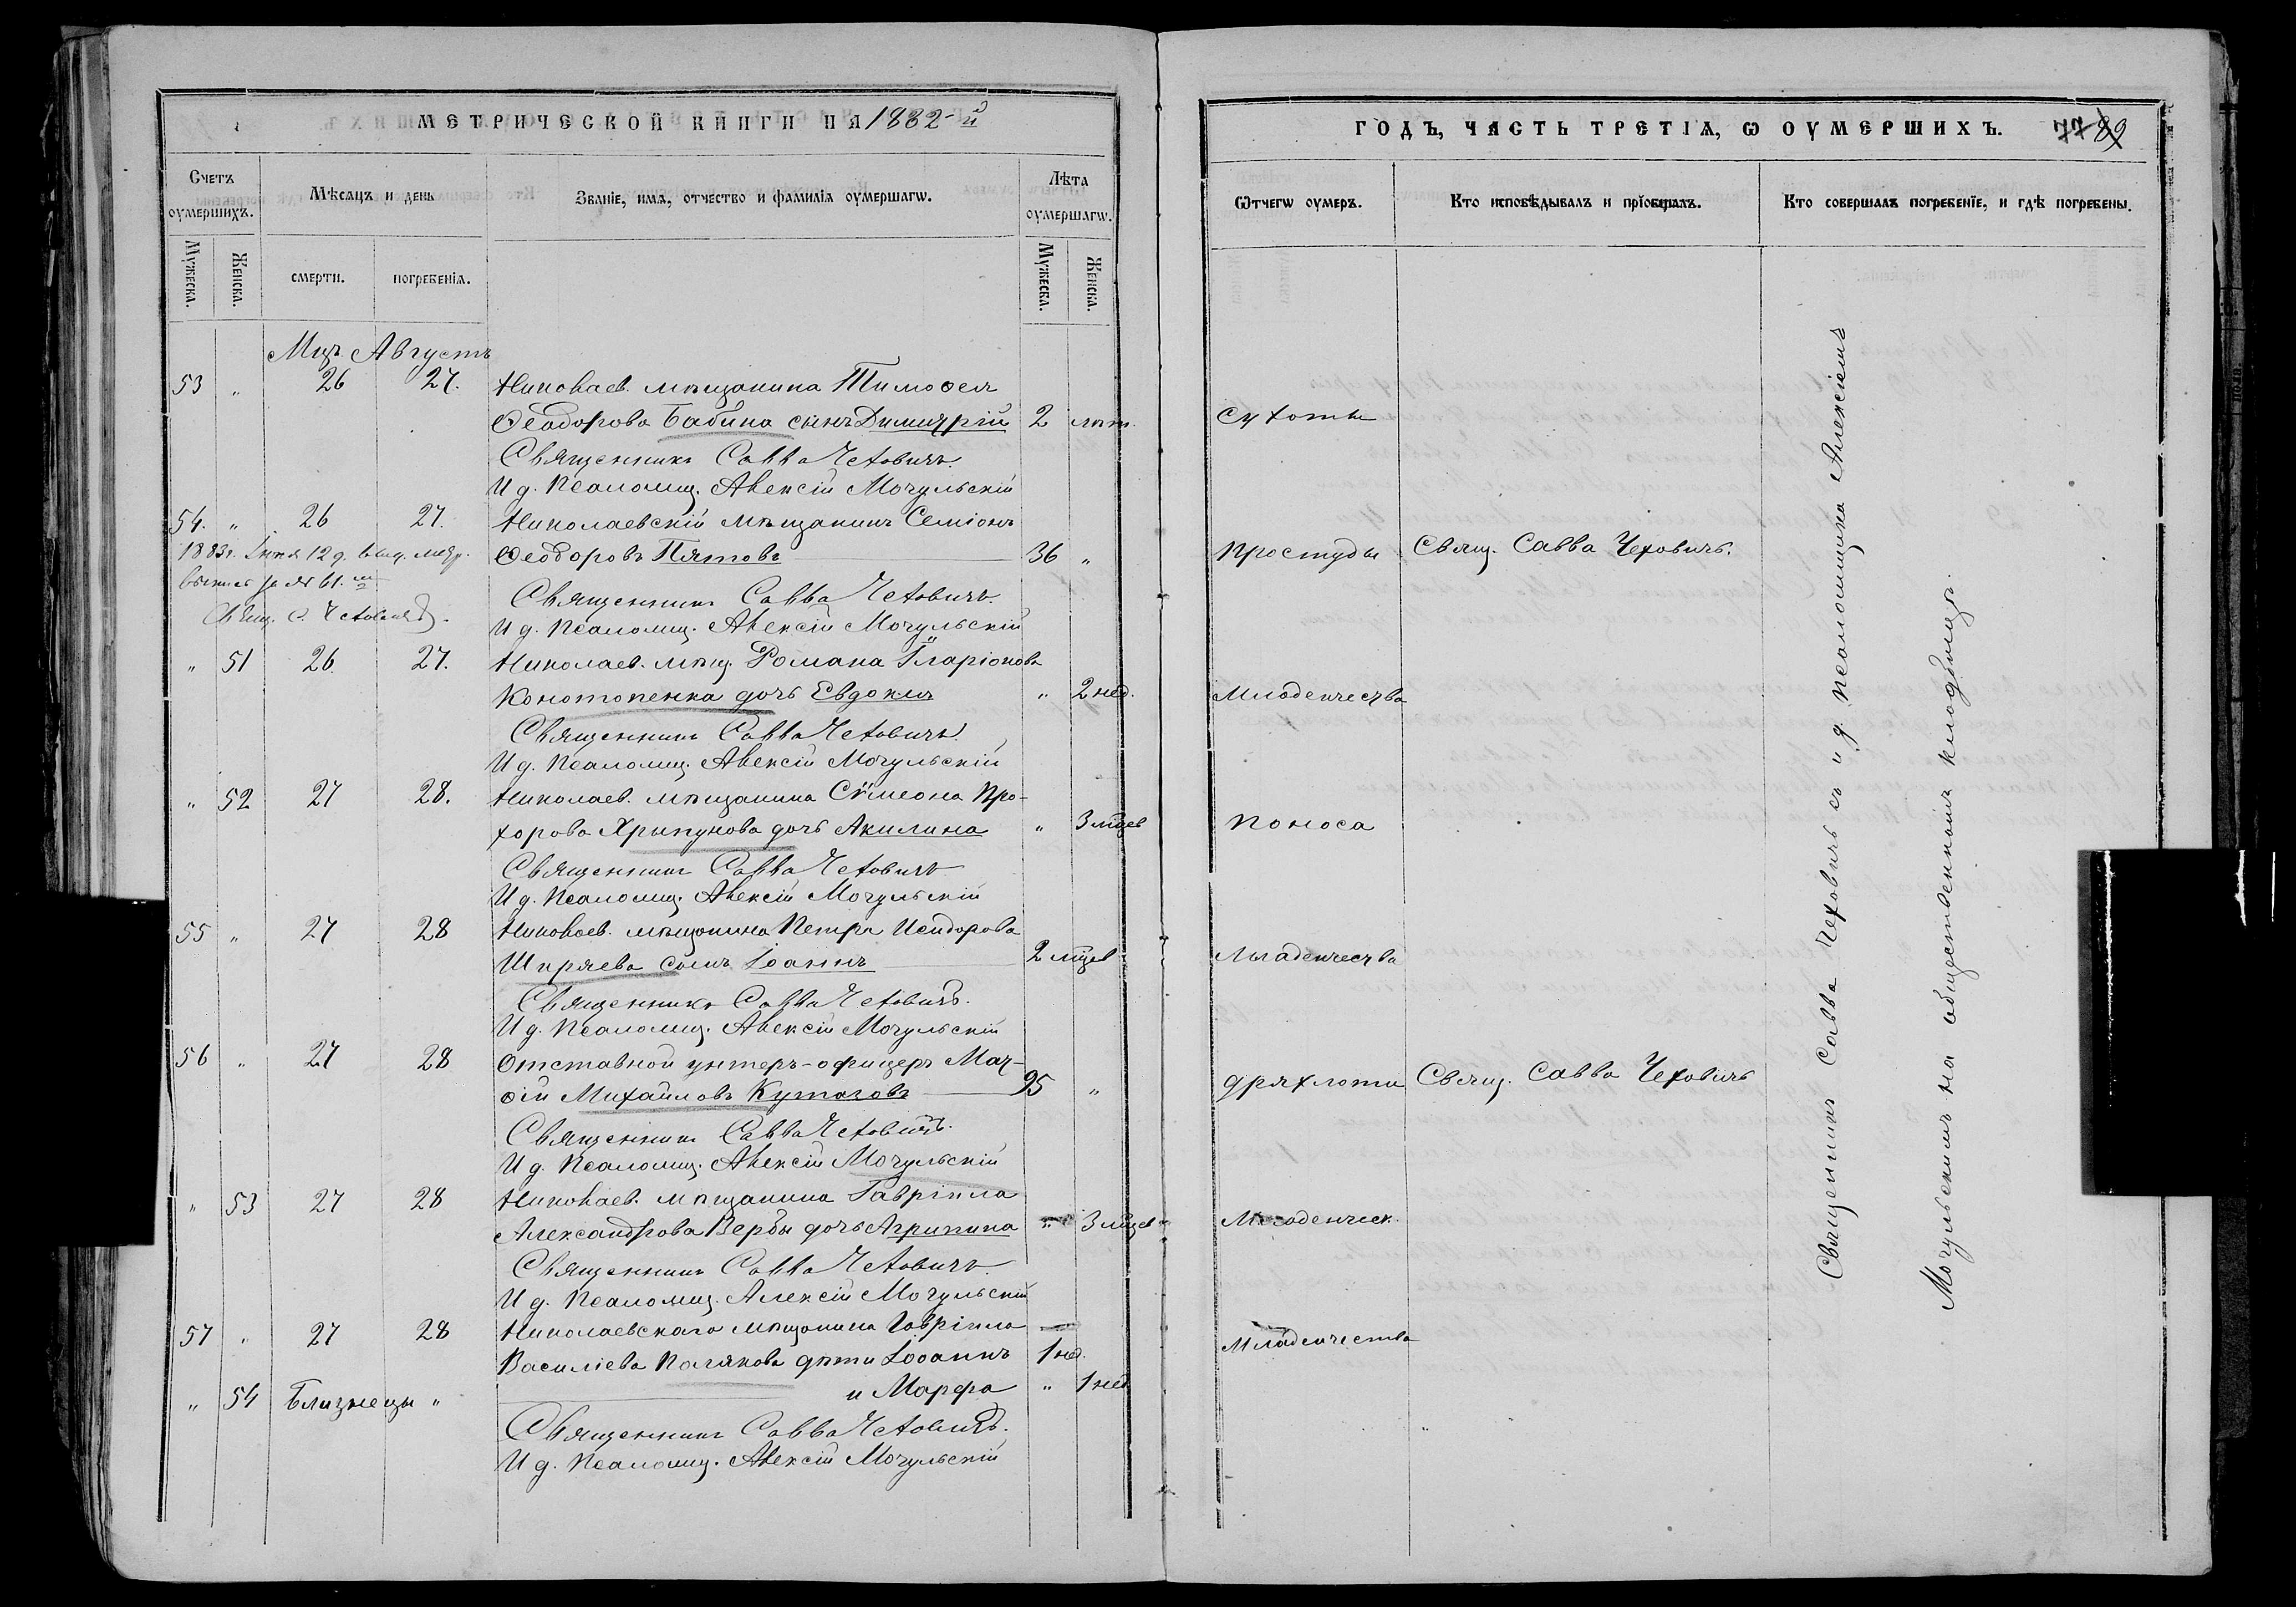 МЕТРИЧЕСКОЙ КНИГИ НА 1882-й
Счетъ оумершихъ.
Мѣсяцъ и день
Званіе, имя, отчество и фамилія оумершагѡ.
Лѣта оумершагѡ.
Мужеска.
Женска.
смерти.
погребенія.
Мужеска.
Женска.
Мцъ Августъ
53 " 26 27. Николаев. мѣщанина Тимоѳея
Ѳеодорова Бабина сынъ Димитрій 2 лѣт.
Священникъ Савва Чеховичъ.
И д. Псаломщ. Алексій Мочульскій
54. " 26 27. Николаевскій мѣщанинъ Семіонъ
1883г. Іюня 12 д. выд. метр. Ѳеодоровъ Пятовъ 36 "
выпись за № 61.
Священникъ Савва Чеховичъ.
Свящ. С. Чеховичъ.
И д. Псаломщ. Алексій Мочульскій
" 51 26 27. Николаев. мѣщ. Романа Иларіонова
Конотопенка дочь Евдокія " 2 нед.
Священникъ Савва Чеховичъ.
И д. Псаломщ. Алексій Мочульскій
" 52 27 28. Николаев. мѣщанина Сѵмеона Про-
хорова Хрипунова дочь Акилина " 3 мцев
Священникъ Савва Чеховичъ
И д. Псаломщ. Алексій Мочульскій
55 " 27 28 Николаев. мѣщанина Петра Исидорова
Ширяева сынъ Іоаннъ 2 мцев
Священникъ Савва Чеховичъ.
И д. Псаломщ. Алексій Мочульскій
56 " 27 28 Отставной унтеръ-офицеръ Мат-
ѳій Михайловъ Кутазовъ 95 "
Священникъ Савва Чеховичъ.
И д. Псаломщ. Алексій Мочульскій
" 53 27 28 Николаев. мѣщанина Гавріила
Александрова Вербы дочь Агрипина " 3 мцев
Священникъ Савва Чеховичъ
И д. Псаломщ. Алексій Мочульскій
57 " 27 28 Николаевскаго мѣщанина Гавріила
Василіева Полякова дѣти Іоаннъ 1 нед.
" 54 Близнецы " и Марфа " 1 нед
Священникъ Савва Чеховичъ.
И д. Псаломщ. Алексій Мочульскій
ГОДЪ, ЧАСТЬ ТРЕТІЯ, Ѡ ОУМЕРШИХЪ. 77 89
Ѿтчегѡ оумеръ.
Кто исповѣдывалъ и пріобщалъ.
Кто совершалъ погребеніе, и гдѣ погребены.
Сухоты
Простуды Свящ. Савва Чеховичъ.
Младенчества
Поноса
Младенчества
Дряхлоти Свящ. Савва Чеховичъ
Младенческ.
Младенчества
Священникъ Савва Чеховичъ съ и д. псаломщика Алексіемъ
Мочульскимъ на общественномъ кладбищѣ.